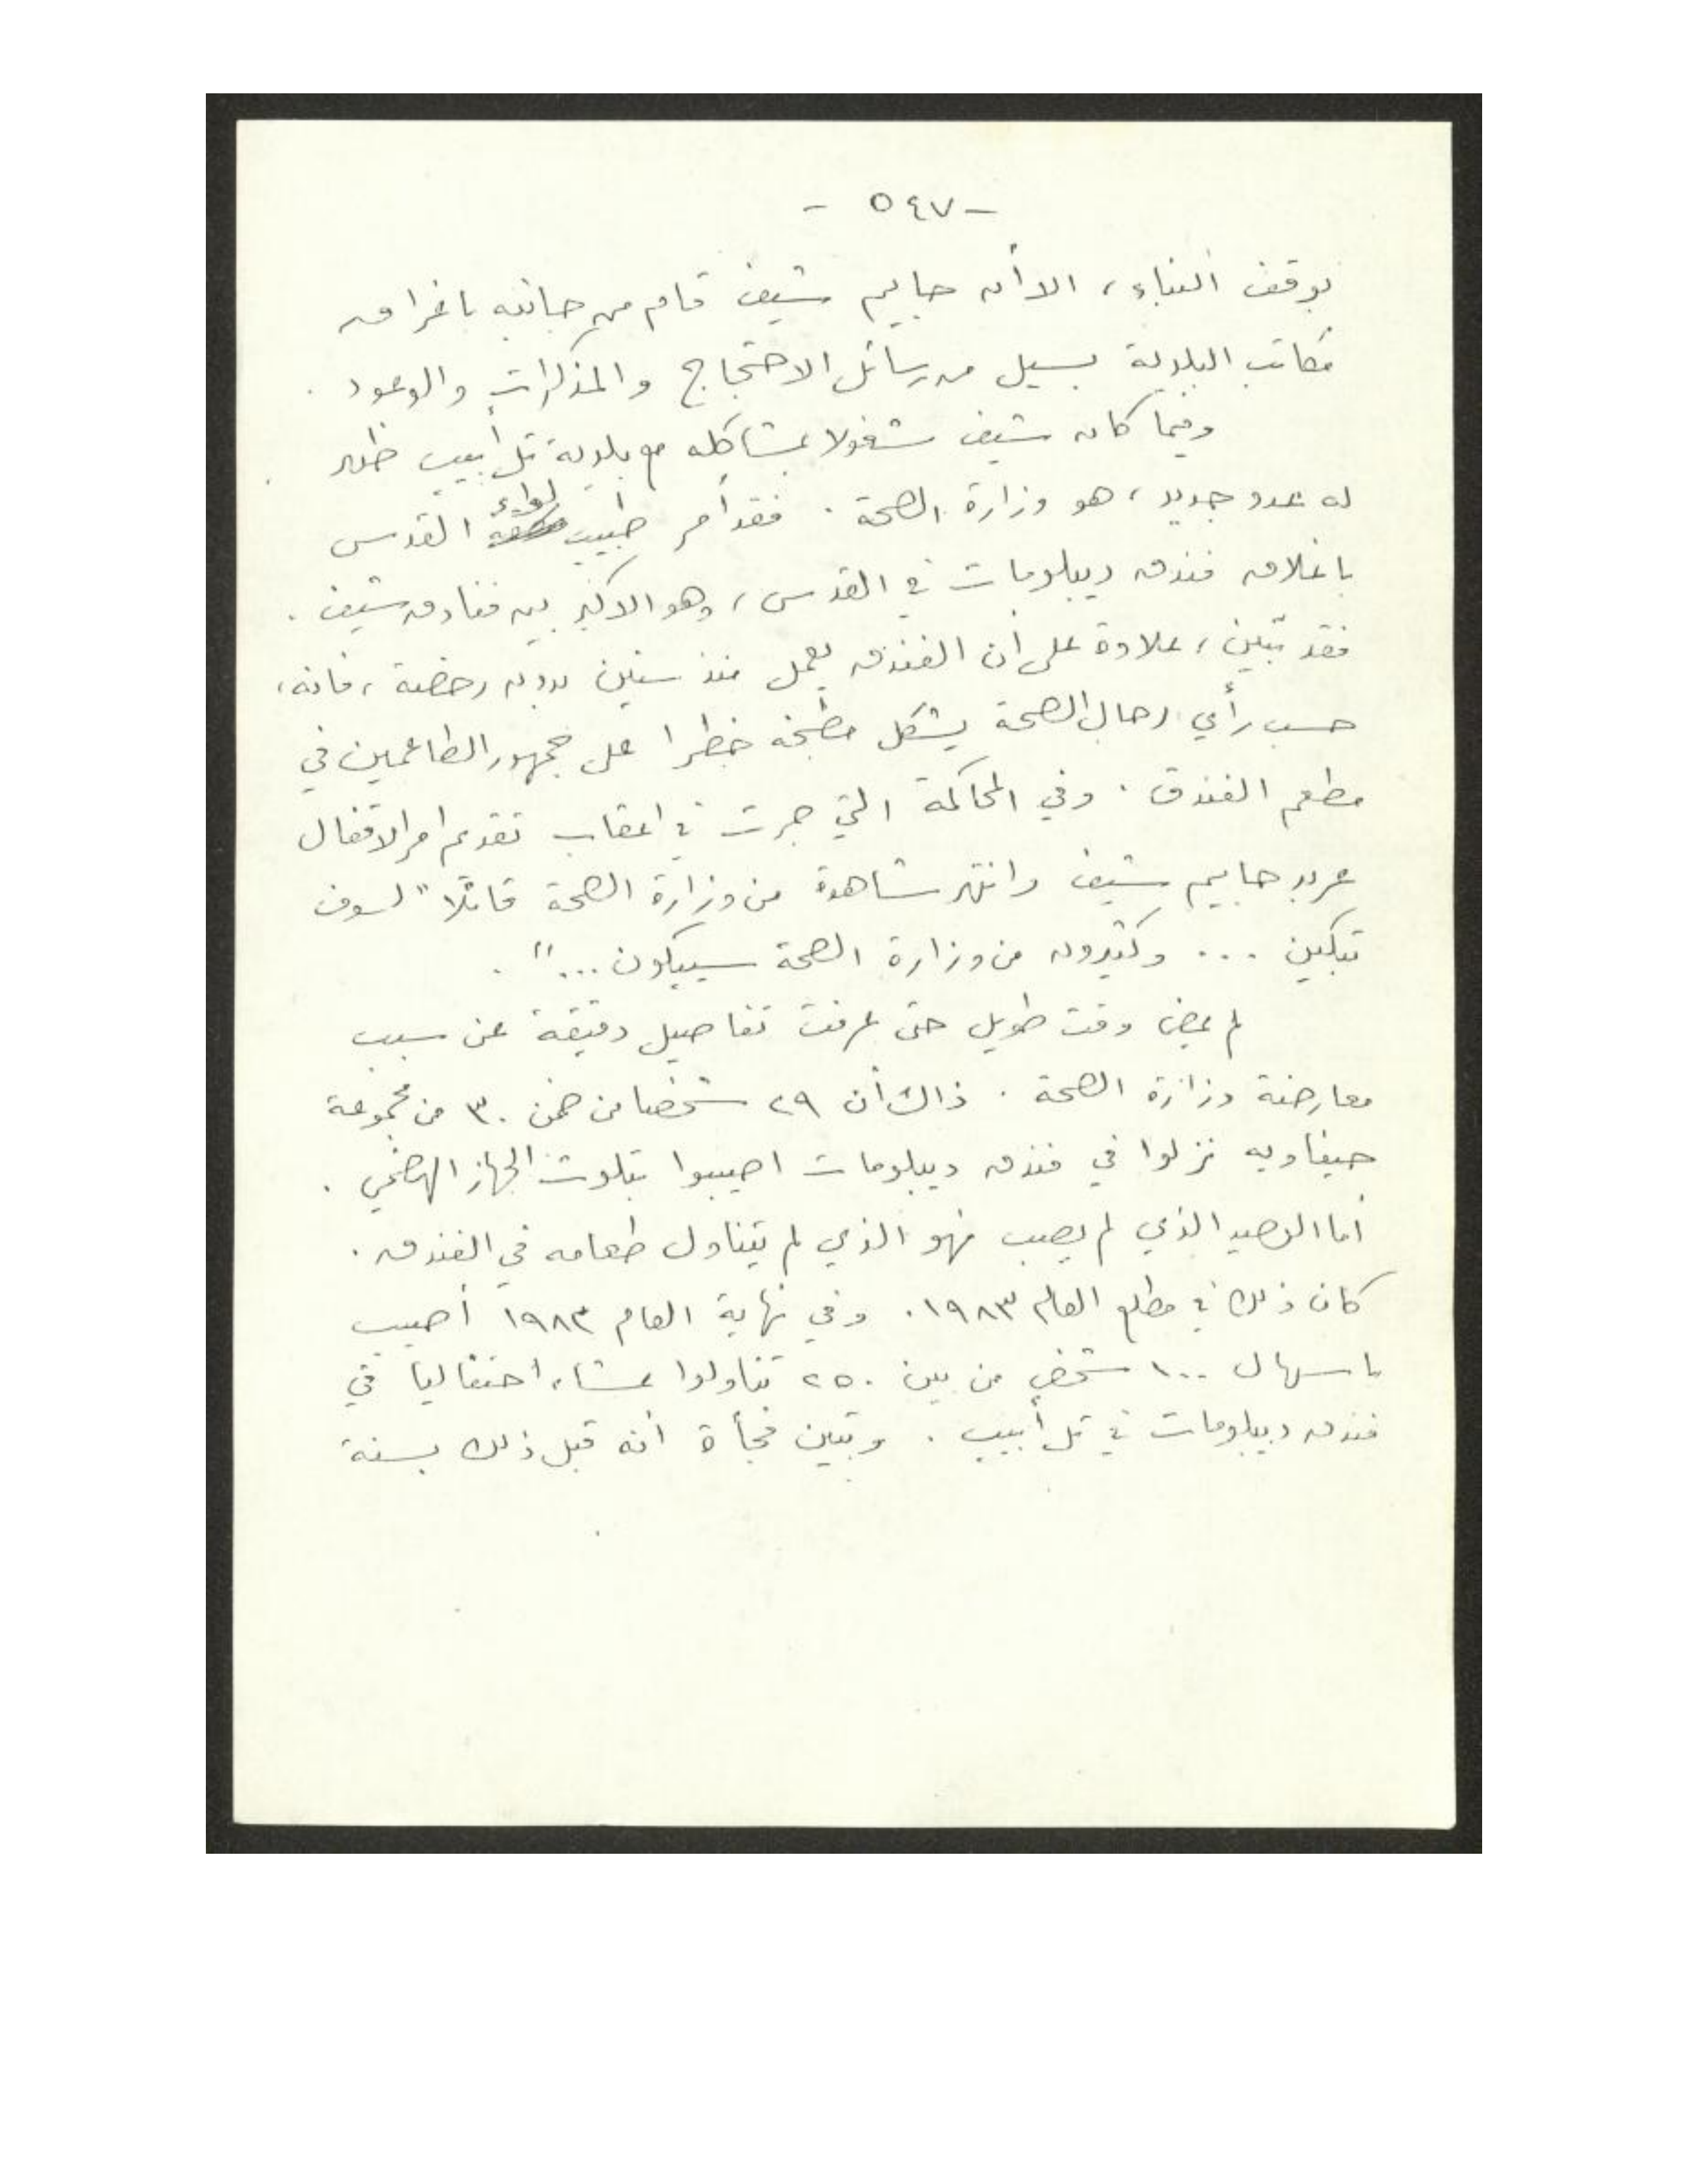 - ٥٤٧ -
بوقف البناء، الا أن حاييم شيف قام من جانبه باغراق
مكاتب البلدية بسيل من رسائل الاحتجاج والمذكرات والوعود .
وفيما كان شيف مشغولا بمشاكله مع بلدية تل أبيب ظهر
له عدو جديد، هو وزارة الصحة . فقد أمر طبيب لواء القدس
باغلاق فندق ديبلومات في القدس، وهو الاكبر بين فنادق شيف .
فقد تبين، علاوة على أن الفندق يعمل منذ سنين بدون رخصة، فانه،
حسب رأي رجال الصحة يشكل مطبخه خطرا على جمهور الطاعمين في
مطعم الفندق . وفي المحاكمة التي جرت في اعقاب تقديم امر الاقفال
عربد حاييم شيف وانتهر شاهدة من وزارة الصحة قائلا "لسوف
تبكين ... وكثيرون من وزارة الصحة سيبكون ..." .
لم يمض وقت طويل حتى عرفت تفاصيل دقيقة عن سبب
معارضة وزارة الصحة . ذاك أن ٢٩ شخصا من ضمن ٣٠ من مجموعة
حيفاويه نزلوا في فندق ديبلومات اصيبوا بتلوث الجهاز الهضمي .
أما الوحيد الذي لم يصب فهو الذي لم يتناول طعامه في الفندق .
كان ذلك في مطلع العام ١٩٨٣ . وفي نهاية العام ١٩٨٣ أصيب
باسهال ١٠٠ شخص من بين ٢٥٠ تناولوا عشاء احتفاليا في
فندق ديبلومات في تل أبيب . وتبين فجأة أنه قبل ذلك بسنة